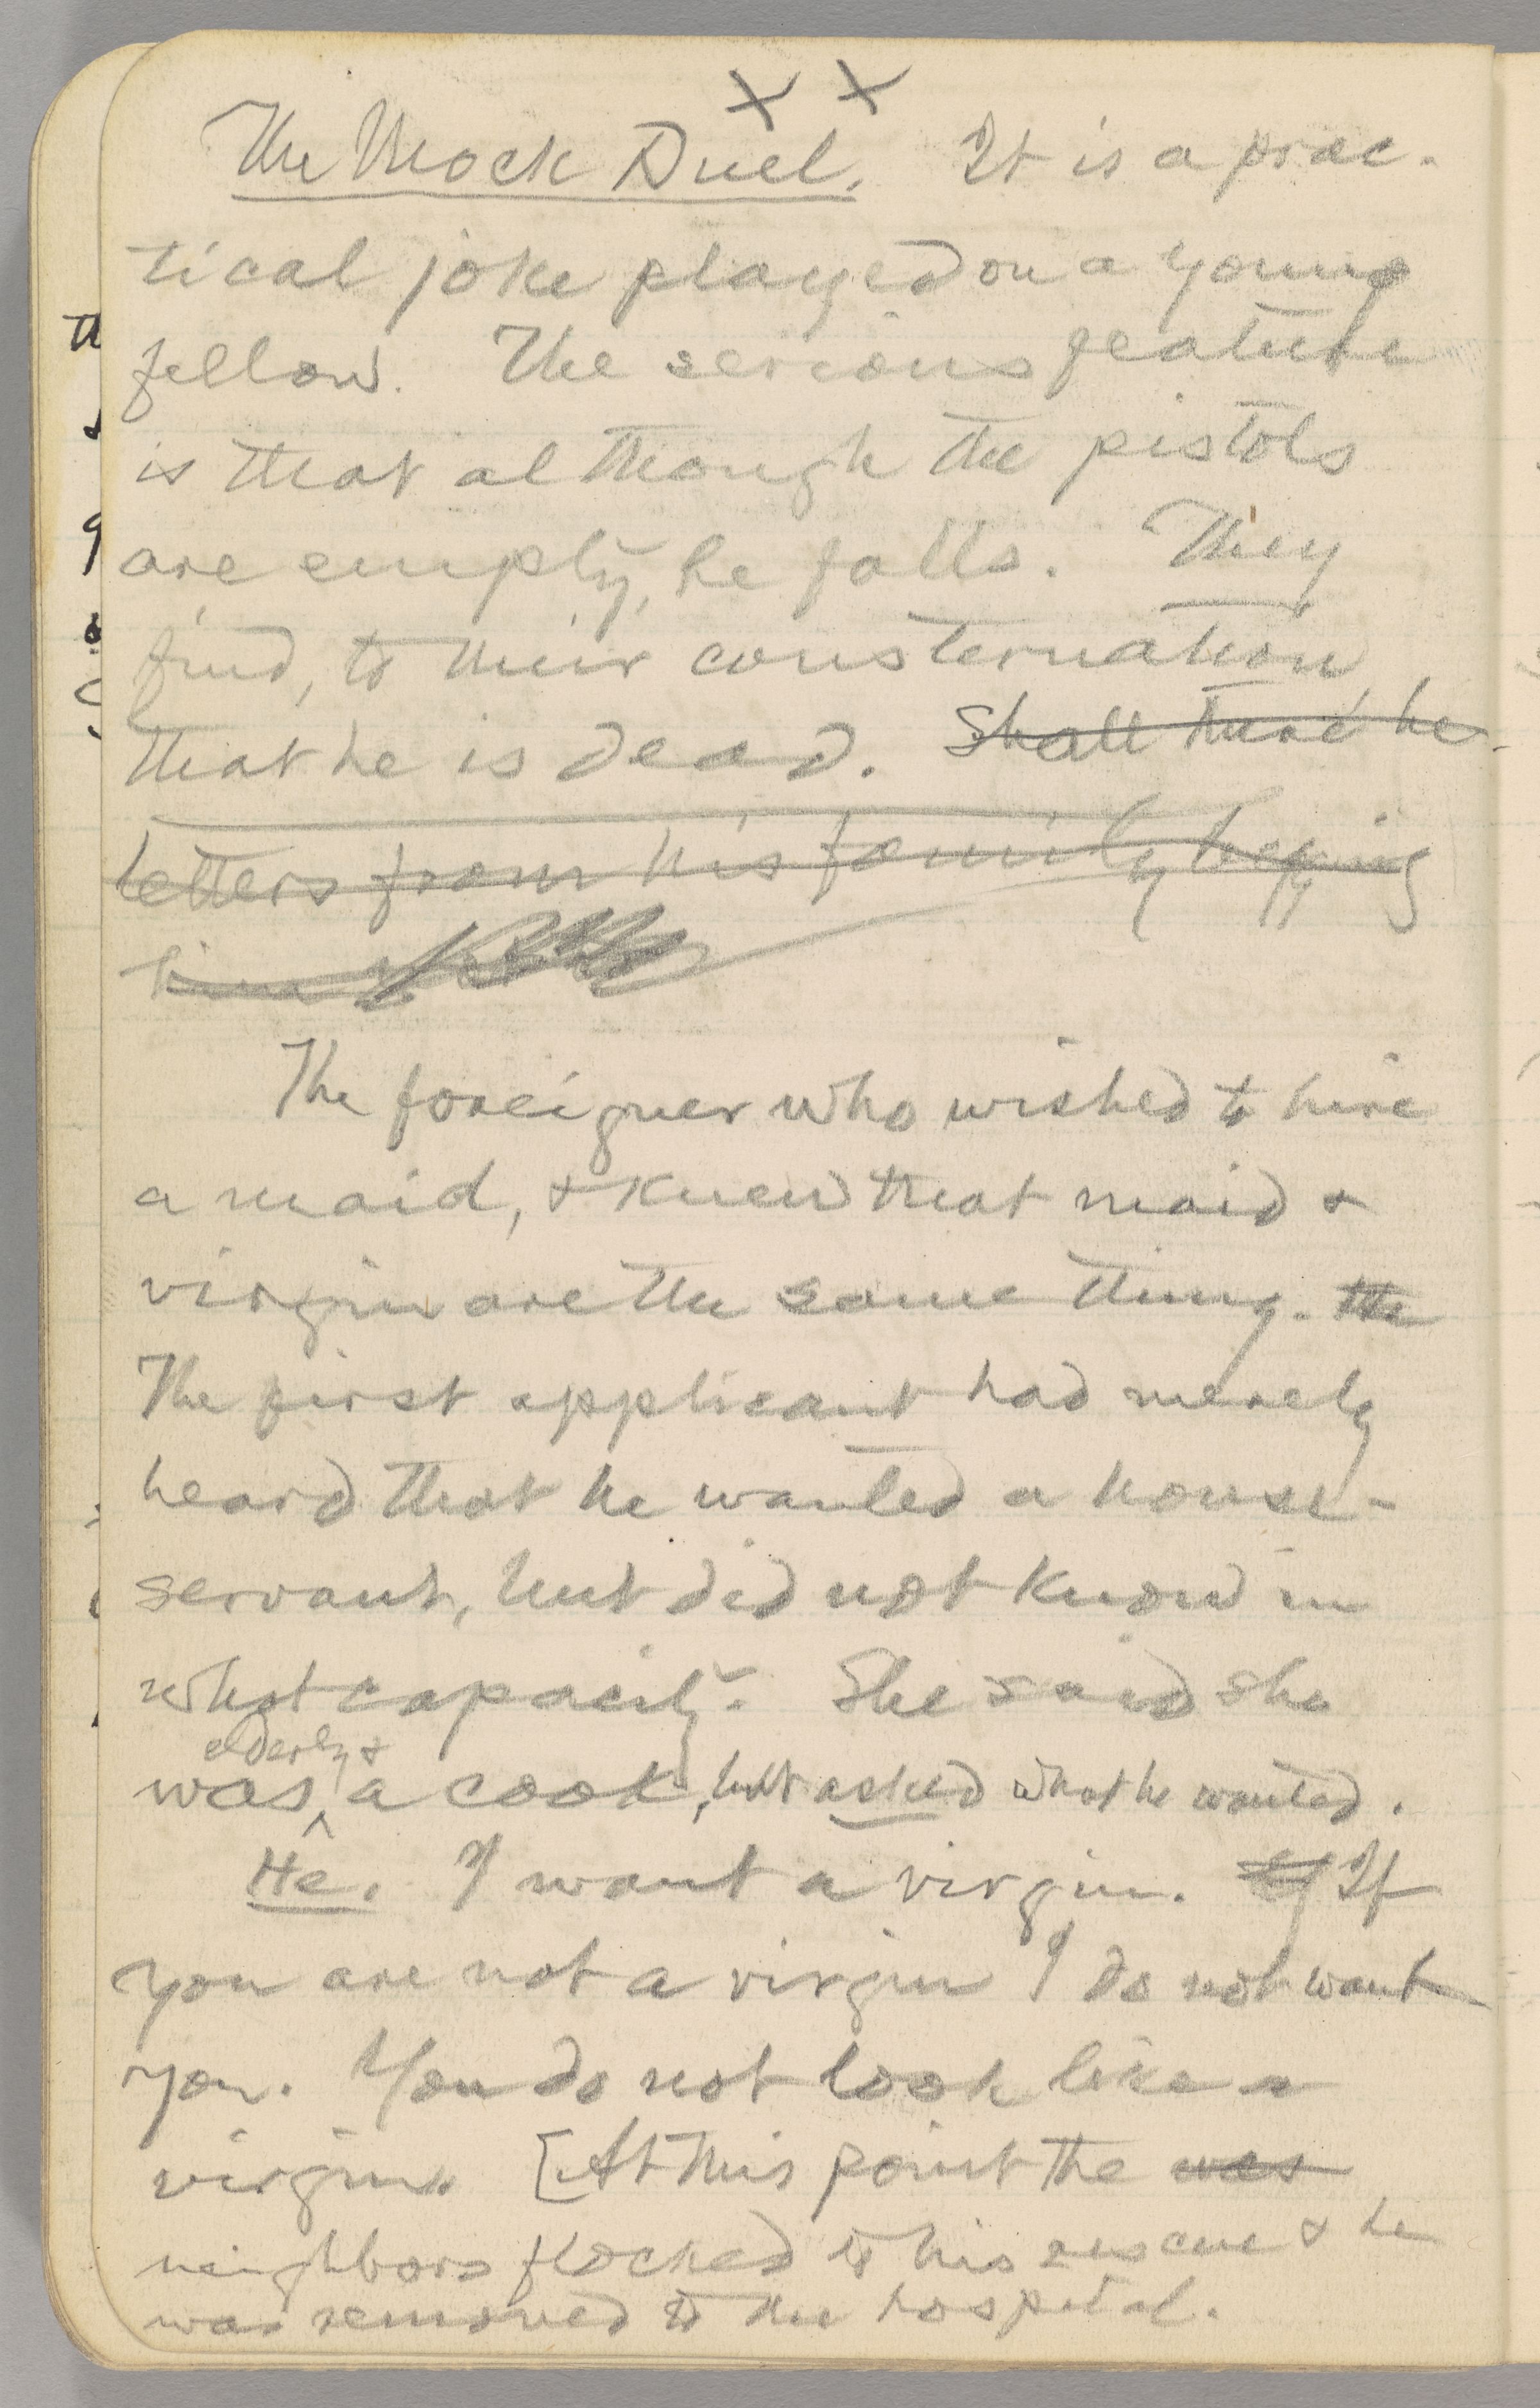 x x
The Mock Duel. It is a prac-
tical joke played on a young
fellow. The serious feature
is that although the pistols
are empty, he falls. They
find, to their consternation,
that he is dead. Shall there be
letters from his family begging
him
The foreigner who wished to hire
a maid, & knew that maid &
virgin are the same thing. The
The first applicant had merely
heard that he wanted a house-
servant, but did not know in
what capacity. She said she
elderly &
was ^ a cook, but asked what he wanted.
He. I want a virgin. If
you are not a virgin I do not want
you. You do not look like a
virgin. [At this point the was
neighbors flocked to his rescue & he
was removed to the hospital.